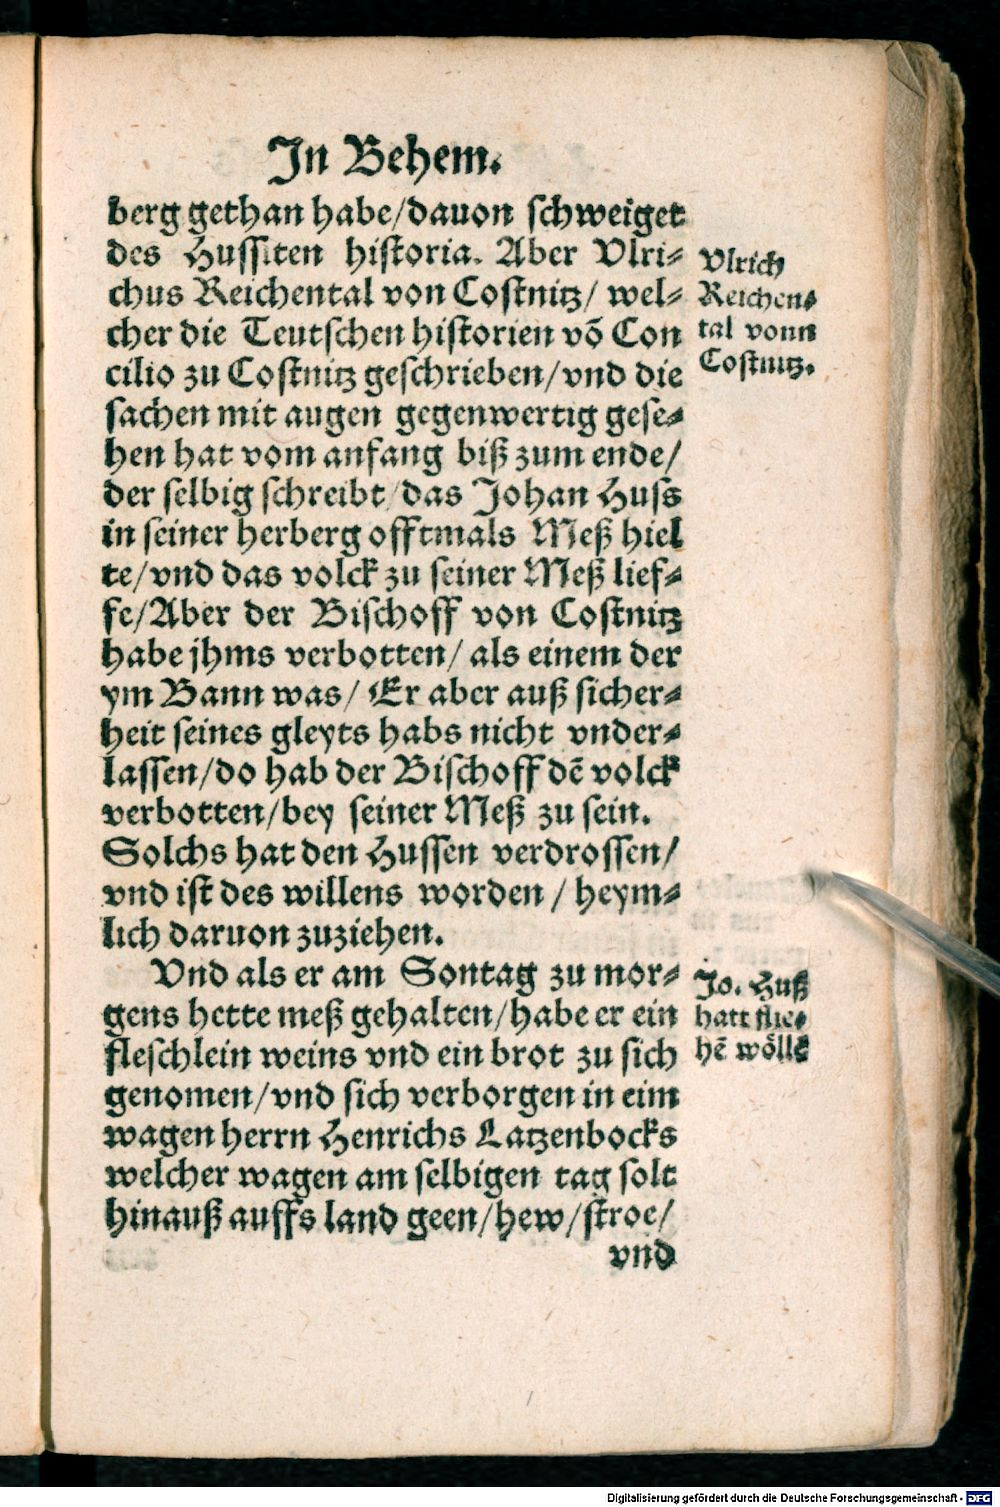 In Behem.
berg gethan habe/dauon schweiget
des Hussiten historia. Aber Vlri-
chus Reichental von Costnitz/ wel-
cher die Teutschen historien võ Con
cilio zu Costnitz geschrieben/vnd die
sachen mit augen gegenwertig gese-
hen hat vom anfang biß zum ende/
der selbig schreibt/das Johan Huss
in seiner herberg offtmals Meß hiel
te/vnd das volck zu seiner Meß lief-
fe/Aber der Bischoff von Costnitz
habe jhms verbotten/ als einem der
ym Bann was/ Er aber auß sicher-
heit seines gleyts habs nicht vnder-
lassen/do hab der Bischoff dẽ volck
verbotten/bey seiner Meß zu sein.
Solchs hat den Hussen verdrossen/
vnd ist des willens worden / heym-
lich daruon zuziehen.
Vnd als er am Sontag zu mor-
gens hette meß gehalten/habe er ein
fleschlein weins vnd ein brot zu sich
genomen/vnd sich verborgen in eim
wagen herrn Henrichs Latzenbocks
welcher wagen am selbigen tag solt
hinauß auffs land geen/hew/stroe/
vnd
Vlrich
Reichen-
tal vonn
Costnitz.
Jo. Huß
hatt flie-
hẽ wöllẽ
Digitalisierung gefördert durch die Deutsche Forschungsgemeinschaft - DFG